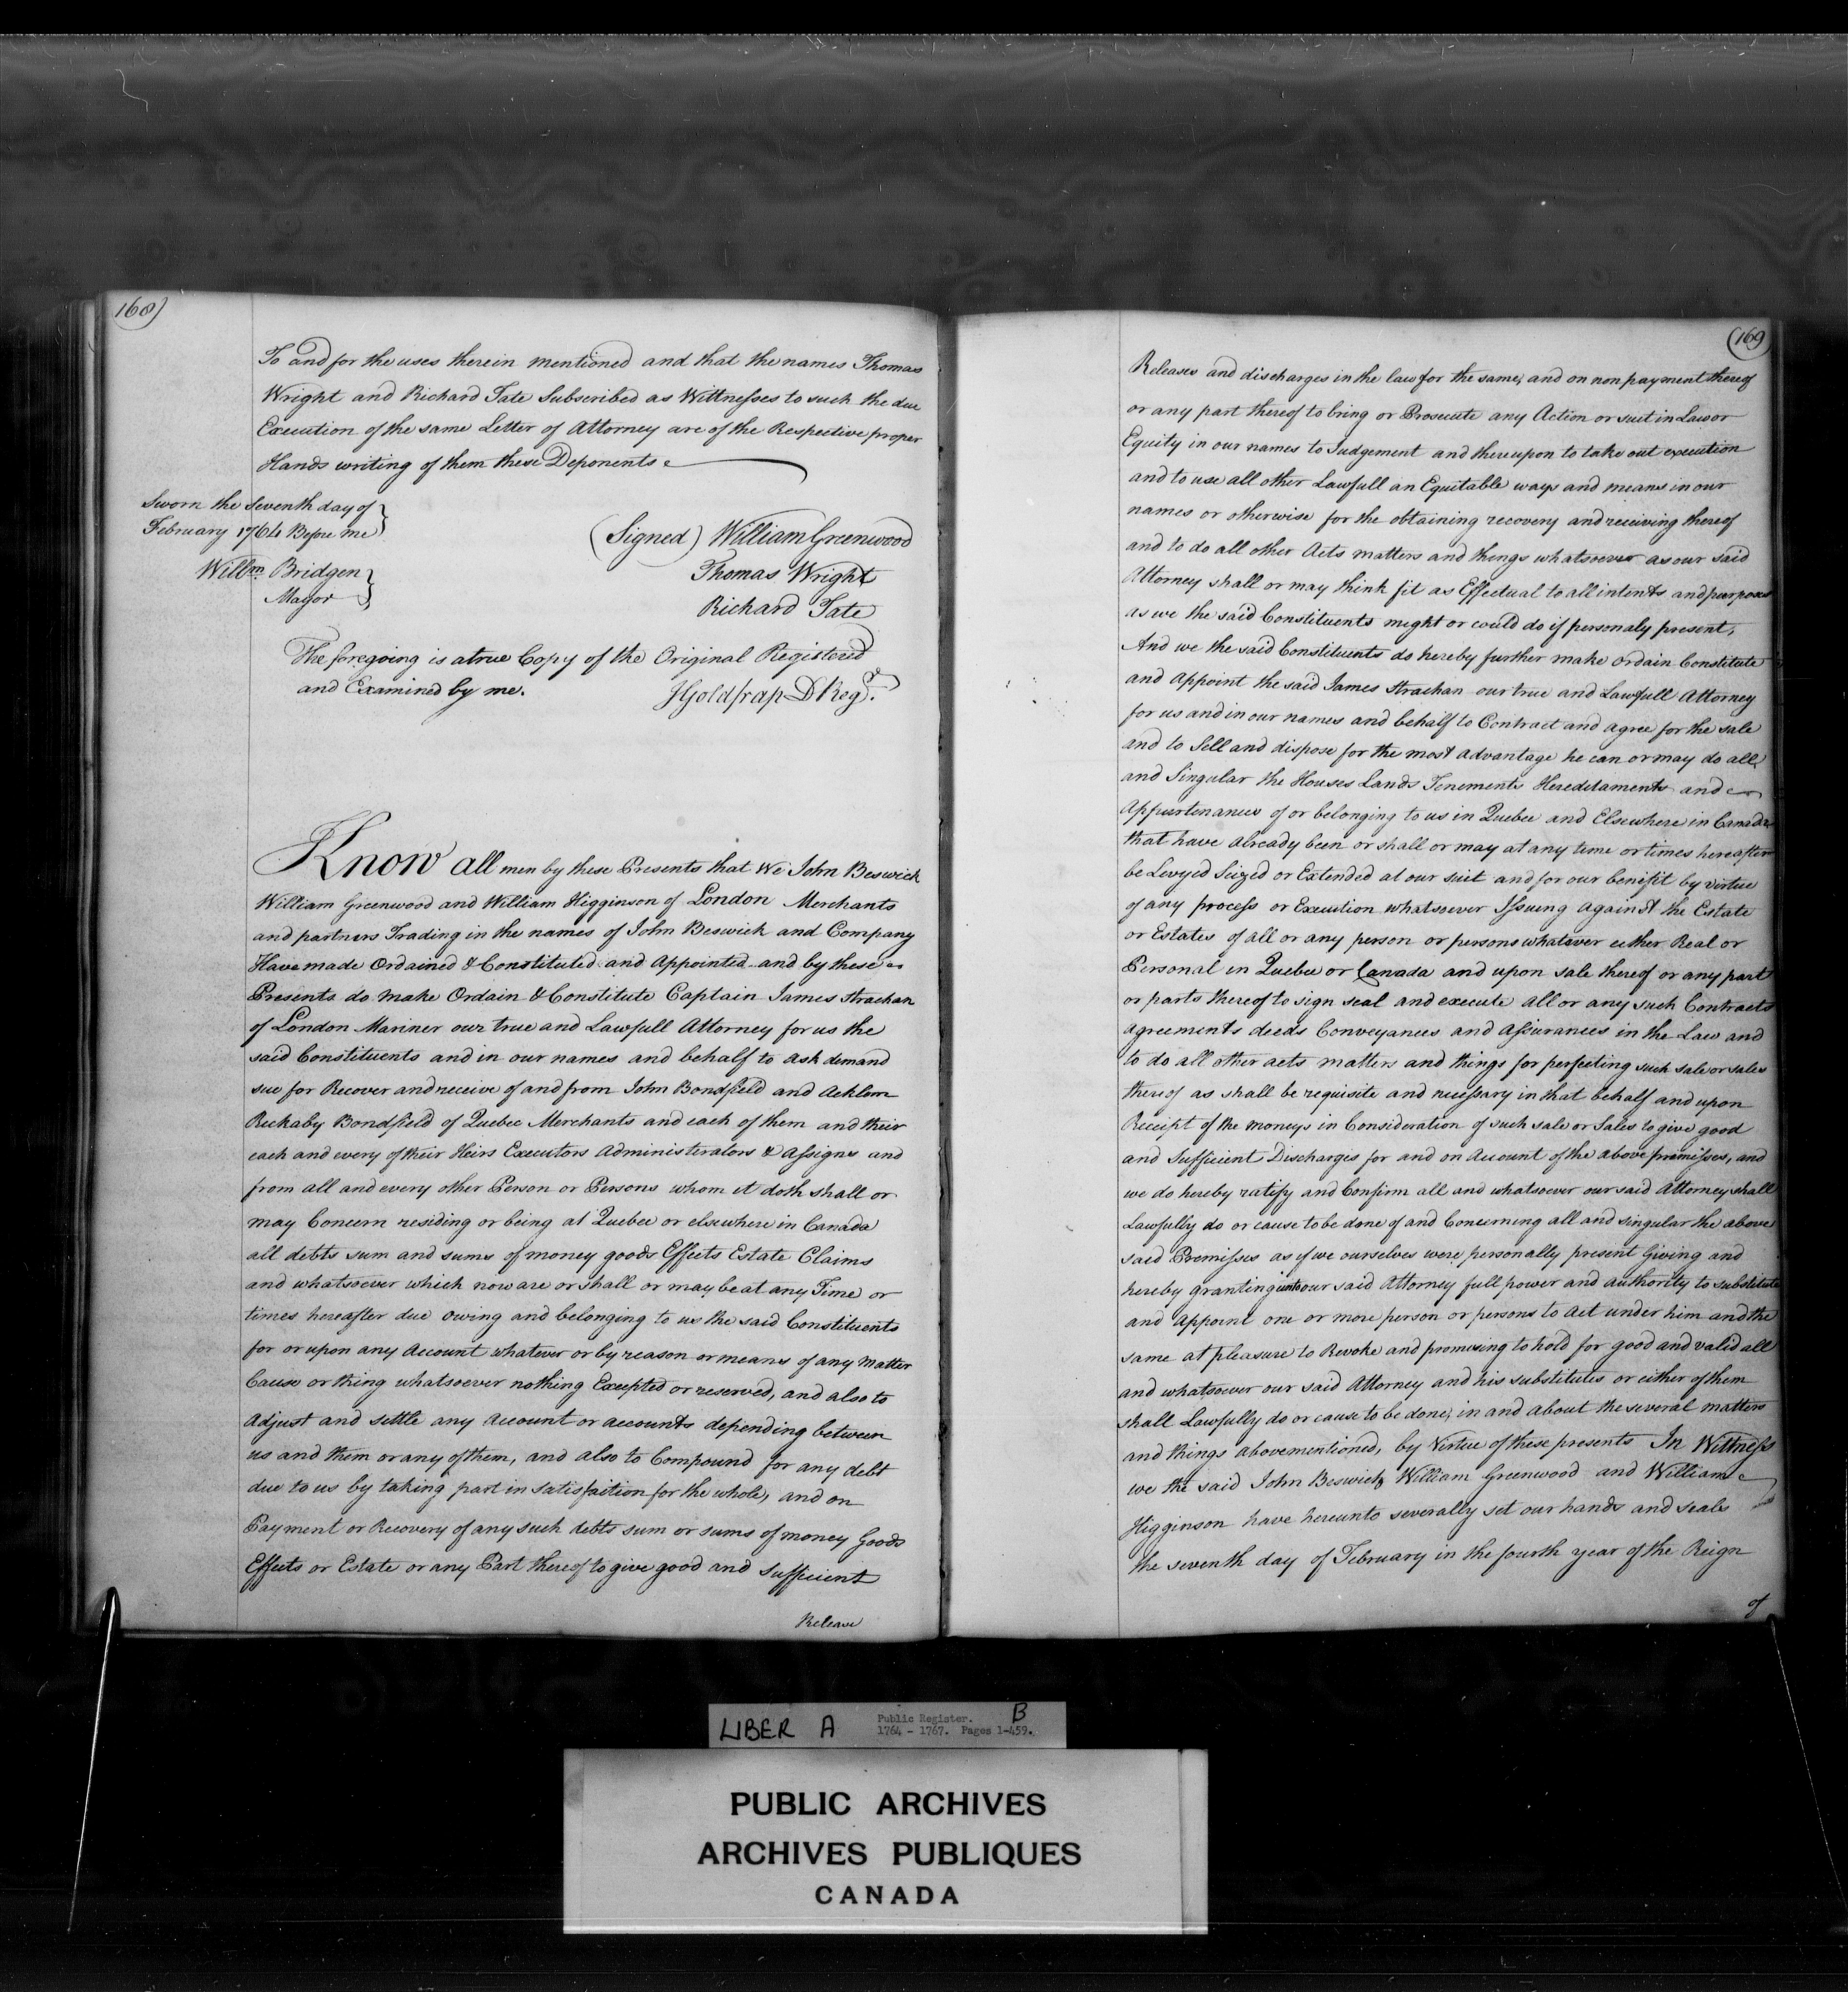 168)
To and for the uses therein mentioned and that the names Thomas
Wright and Richard Tate Subscribed as Wittnesses to such the due
Execution of the same Letter of Attorney are of the Respective proper
Hands writing of them these Deponents
Sworn the Seventh day of
February 1764 Before me
Willm Bridgen
Mayor
(Signed) William Greenwood
Thomas Wright
Richard Tate
The foregoing is a true Copy of the Original Registered
and Examined by me.
JGoldfrap DRegr.
Know all men by these Presents that We John Beswick
William Greenwood and William Higginson of London Merchants
and partners Trading in the names of John Beswick and Company
Have made Ordained & Constituted and Appointed and by these
Presents do make Ordain & Constitute Captain James Strachan
of London Mariner our true and Lawfull Attorney for us the
said Constituents and in our names and behalf to ask demand
sue for Recover and receive of and from John Bondfield and Acklom
Rickaby Bondfield of Quebec Merchants and each of them and their
each and every of their Heirs Executors Administerators & Assigns and
from all and every other Person or Persons whom it doth shall or
may Concern residing or being at Quebec or elsewhere in Canada
all debts sum and sums of money goods Effects Estate Claims
and whatsoever which now are or shall or may be at any Time or
times hereafter due owing and belonging to us the said Constituents
for or upon any Account whatever or by reason or means of any Matter
Cause or thing whatsoever nothing Excepted or reserved, and also to
Adjust and settle any Account or accounts depending between
us and them or any of them, and also to Compound for any debt
due to us by taking part in satisfaition for the whole, and on
Payment or Recovery of any such debts sum or sums of money Goods
Effects or Estate or any Part thereof to give good and Sufficient
Release
(169)
Releases and discharges in the law for the same, and on non payment thereof
or any part thereof to bring or Prosecute any Action or suit in Law or
Equity in our names to Judgement and thereupon to take out execution
and to use all other Lawfull an Equitable ways and means in our
names or otherwise for the obtaining recovery and receiving thereof
and to do all other Acts matters and things whatsoever as our said
Attorney shall or may think fit as Effectual to all intents and purposes
as we the said Constituents might or could do if personaly present,
And we the said Constituents do hereby further make ordain Constitute
and Appoint the said James Strachan our true and Lawfull Attorney
for us and in our names and behalf to Contract and agree for the sale
and to Sell and dispose for the most Advantage he can or may do all
and Singular the Houses Lands Tenements Hereditaments and
Appurtenances of or belonging to us in Quebec and Elsewhere in Canada
that have already been or shall or may at any time or times hereafter
be Levyed Seized or Extended at our suit and for our benifit by virtue
of any process or Execution whatsoever Issuing against the Estate
or Estates of all or any person or persons whatever either Real or
Personal in Quebec or Canada and upon sale thereof or any part
or parts thereof to sign seal and execute all or any such Contracts
agreements deeds Conveyances and Assurances in the Law and
to do all other acts matters and things for perfecting such sale or sales
thereof as shall be requisite and necessary in that behalf and upon
Receipt of the moneys in Consideration of such sale or Sales to give good
and Sufficient Discharges for and on Account of the above premisses, and
we do hereby ratify and Confirm all and whatsoever our said Attorney shall
Lawfully do or cause to be done of and Concerning all and singular the above
said Premisses as if we ourselves were personally present Giving and
hereby granting unto our said Attorney full power and authority to substitute
and Appoint one or more person or persons to Act under him and the
same at pleasure to Revoke and promising to hold for good and valid all
and whatsoever our said Attorney and his substitutes or either of them
shall Lawfully do or cause to be done, in and about the several matters
and things abovementioned, by Virtue of these presents In Wittness
we the said John Beswick William Greenwood and William
Higginson have hereunto severally set our hands and seals
the seventh day of February in the fourth year of the Reign
of
LIBER A
Public Register. B
1764 - 1767. Pages 1-459.
PUBLIC ARCHIVES
ARCHIVES PUBLIQUES
CANADA